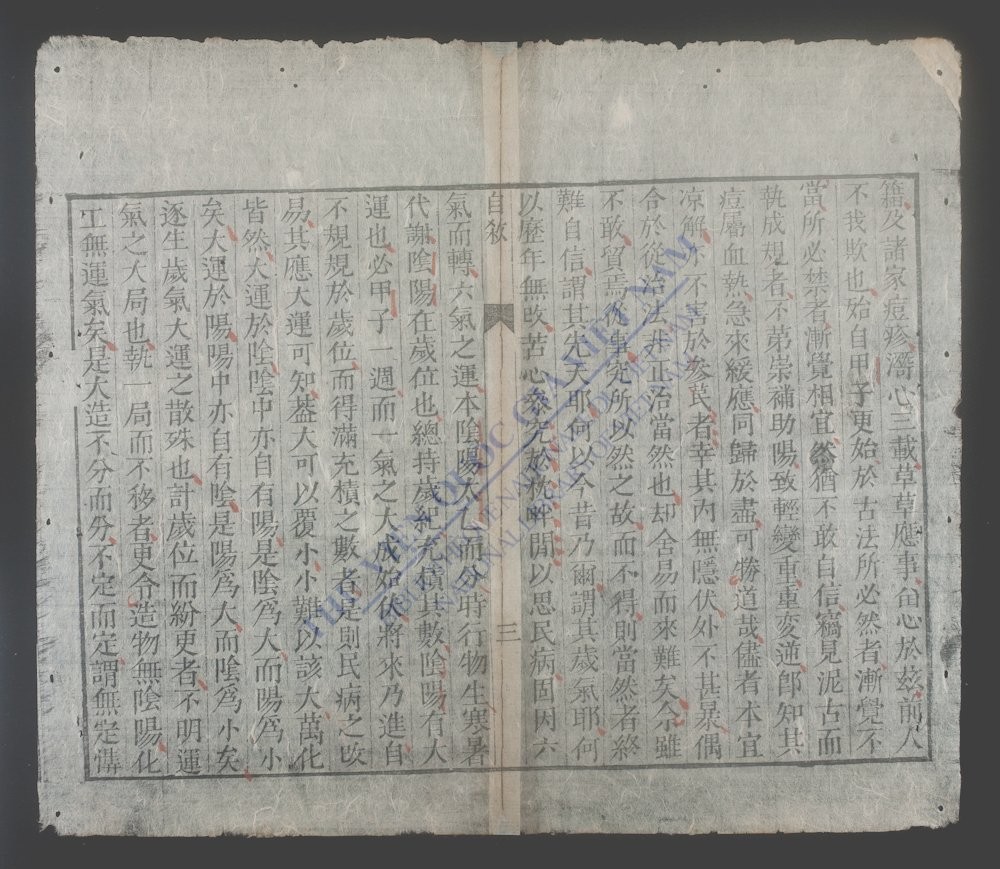 籍及諸家痘疹潛心三載草草應事尙心於玆前人
不我欺也殆自甲子更始於古法所必然者漸覺不
當所必禁者漸覺相宜然猶不敢自信竊見泥古而
執成規者不弟崇補助陽致輕變重重変逆卽知其
痘屬血熱急來緩應同歸於盡可勝道哉儘者本宜
凉解不害於參芪者幸其內無隱伏外不甚暴偶
合於從治法非正治當然也却舍易而來難矣余雖
不敢質焉後事究所以然之故而不得則當然者終
難自信謂其先天耶何以今昔乃爾謂其歲氣耶何
以歷年無改苦心叅究於枕畔閒以思民病固因六
自敘
三
氣而轉六氣之運本陰陽太乙而分時行物生寒暑
代謝陰陽在歲位也總持歲紀充積其數陰陽有大
運也必甲子一週而一氣之大成始伏將來乃進自
不規規於歲位而得滿充積之數者是則民病之改
易其應大運可知葢大可以覆小小難以該大萬化
皆然大運於陰陰中亦自有陽是陰爲大而陽爲小
矣大運於陽陽中亦自有陰是陽爲大而陰爲小矣
逐生歲氣大運之散殊也計歲位而紛更者不明運
氣之大局也執一局而不移者更令造物無陰陽化
工無運氣矣是大造不分而分不定而定謂無定講
THE VIEN QUOC GIA VIET NAM
NATIONAL LIBRARY OF VIETNAM